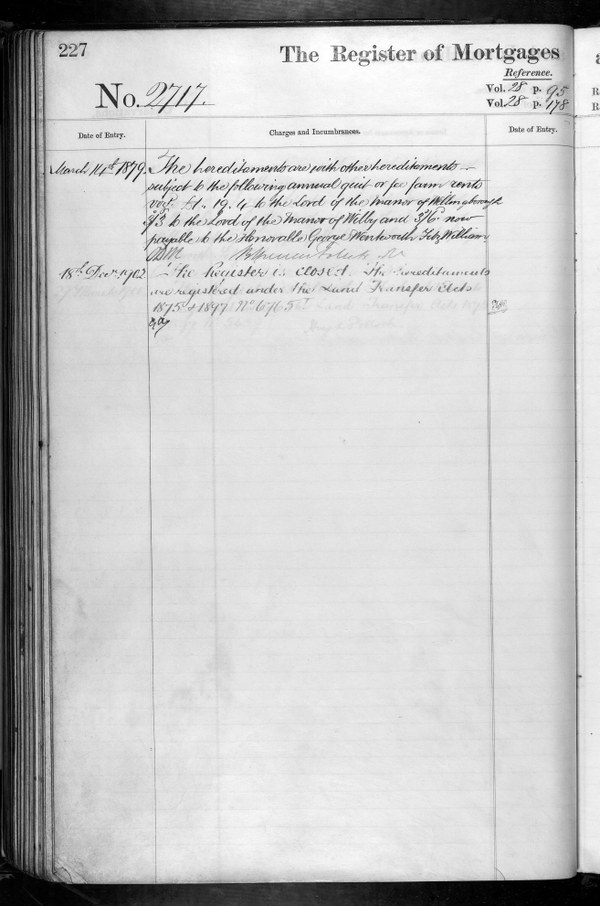 227
The Register of Mortgages
Reference.
No. 2717.
Vol. 28 p. 95
Vol. 28 p. 178
Date of Entry.
Charges and Incumbrances.
Date of Entry.
March 14th 1879
The hereditaments are with other hereditaments
subject to the following annual quit or fee farm rents
viz.t £1. 19. 4 to the Lord of the Manor of Wellingborough
to the Lord of the Manor of Wilby and 3/6 now
payable to the Honorable George Wentworth FitzWilliam
18th Decr. 1902
The Register is closed. The hereditaments
are registered under the Land Transfer Acts
1875 & 1897 No